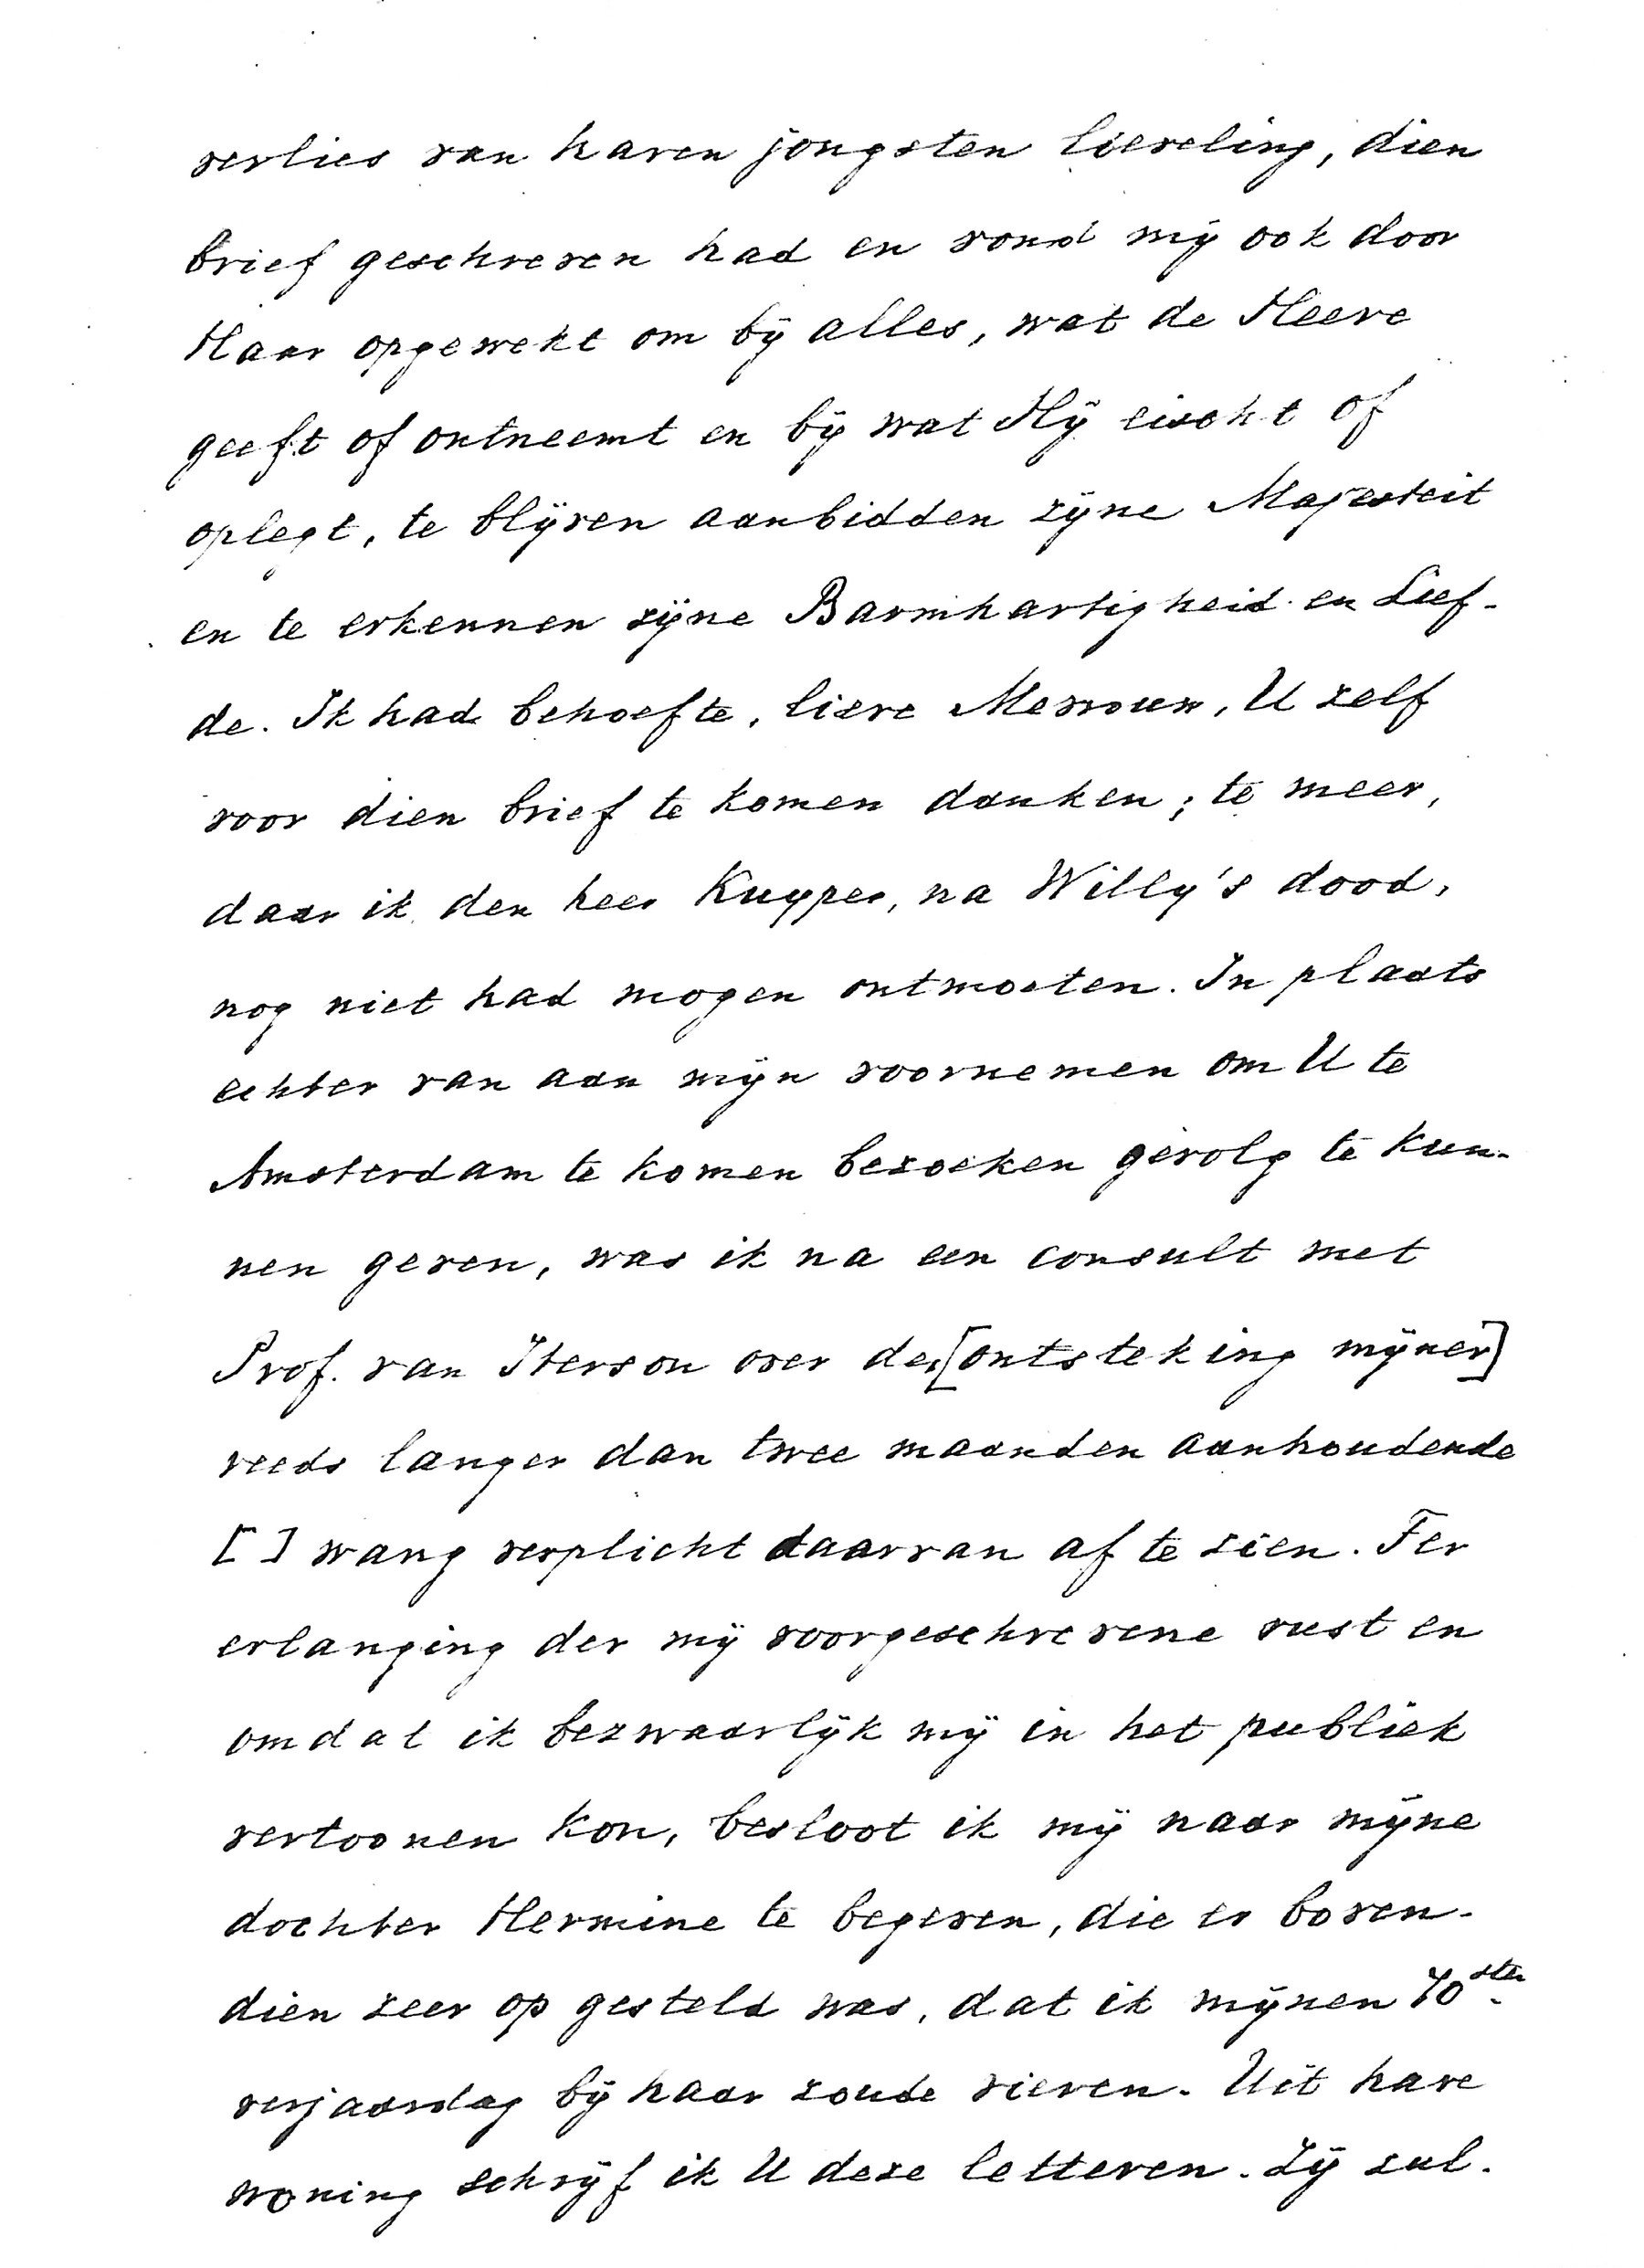 verlies van haren jongsten lieveling, dien
brief geschreven had en vond mij ook door
Haar opgewekt om bij alles, wat de Heere
geeft of ontneemt en bij wat Hij eischt of
oplegt, te blijven aanbidden zijne Majesteit
en te erkennen zijne Barmhartigheid en Lief-
de. Ik had behoefte, lieve Mevrouw, U zelf
voor dien brief te komen danken; te meer,
daar ik den heer Kuyper, na Willy's dood,
nog niet had mogen ontmoeten. In plaats
echter van aan mijn voornemen om U te
Amsterdam te komen bezoeken gevolg te kun-
nen geven, was ik na een consult met
Prof. van Iterson over de [ontsteking mijner]
reeds langer dan twee maanden aanhoudende
[ ] wang verplicht daarvan af te zien. Ter
erlanging der mij voorgeschrevene rust en
omdat ik bezwaarlijk mij in het publiek
vertoonen kon, besloot ik mij naar mijne
dochter Hermine te begeven, die er boven-
dien zeer op gesteld was, dat ik mijnen 70sten
verjaardag bij haar zoude vieren. Uit hare
woning schrijf ik U deze letteren. Zij zul-